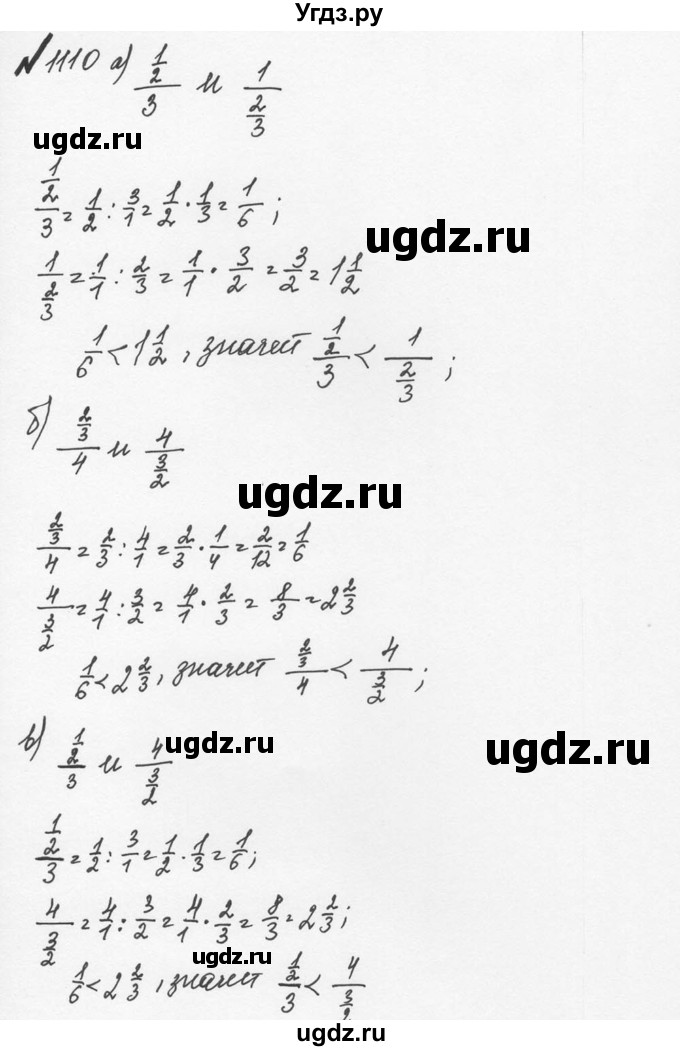 Угдз.ру
№1110 а) (1/2)/3 и 1/(2/3)
ugdz.ru
(1/2)/3 = 1/2 : 3/1 = 1/2 · 1/3 = 1/6 ;
ugdz.ru
1/(2/3) = 1/1 : 2/3 = 1/1 · 3/2 = 3/2 = 1 1/2
1/6 < 1 1/2 , значит (1/2)/3 < 1/(2/3) ;
б) (2/3)/4 и 4/(3/2)
ugdz.ru
(2/3)/4 = 2/3 : 4/1 = 2/3 · 1/4 = 2/12 = 1/6
4/(3/2) = 4/1 : 3/2 = 4/1 · 2/3 = 8/3 = 2 2/3
1/6 < 2 2/3 , значит (2/3)/4 < 4/(3/2) ;
в) (1/2)/3 и 4/(3/2)
ugdz.ru
ugdz.ru
(1/2)/3 = 1/2 : 3/1 = 1/2 · 1/3 = 1/6 ;
4/(3/2) = 4/1 : 3/2 = 4/1 · 2/3 = 8/3 = 2 2/3 ;
ugdz.ru
1/6 < 2 2/3 , значит (1/2)/3 < 4/(3/2)
ugdz.ru